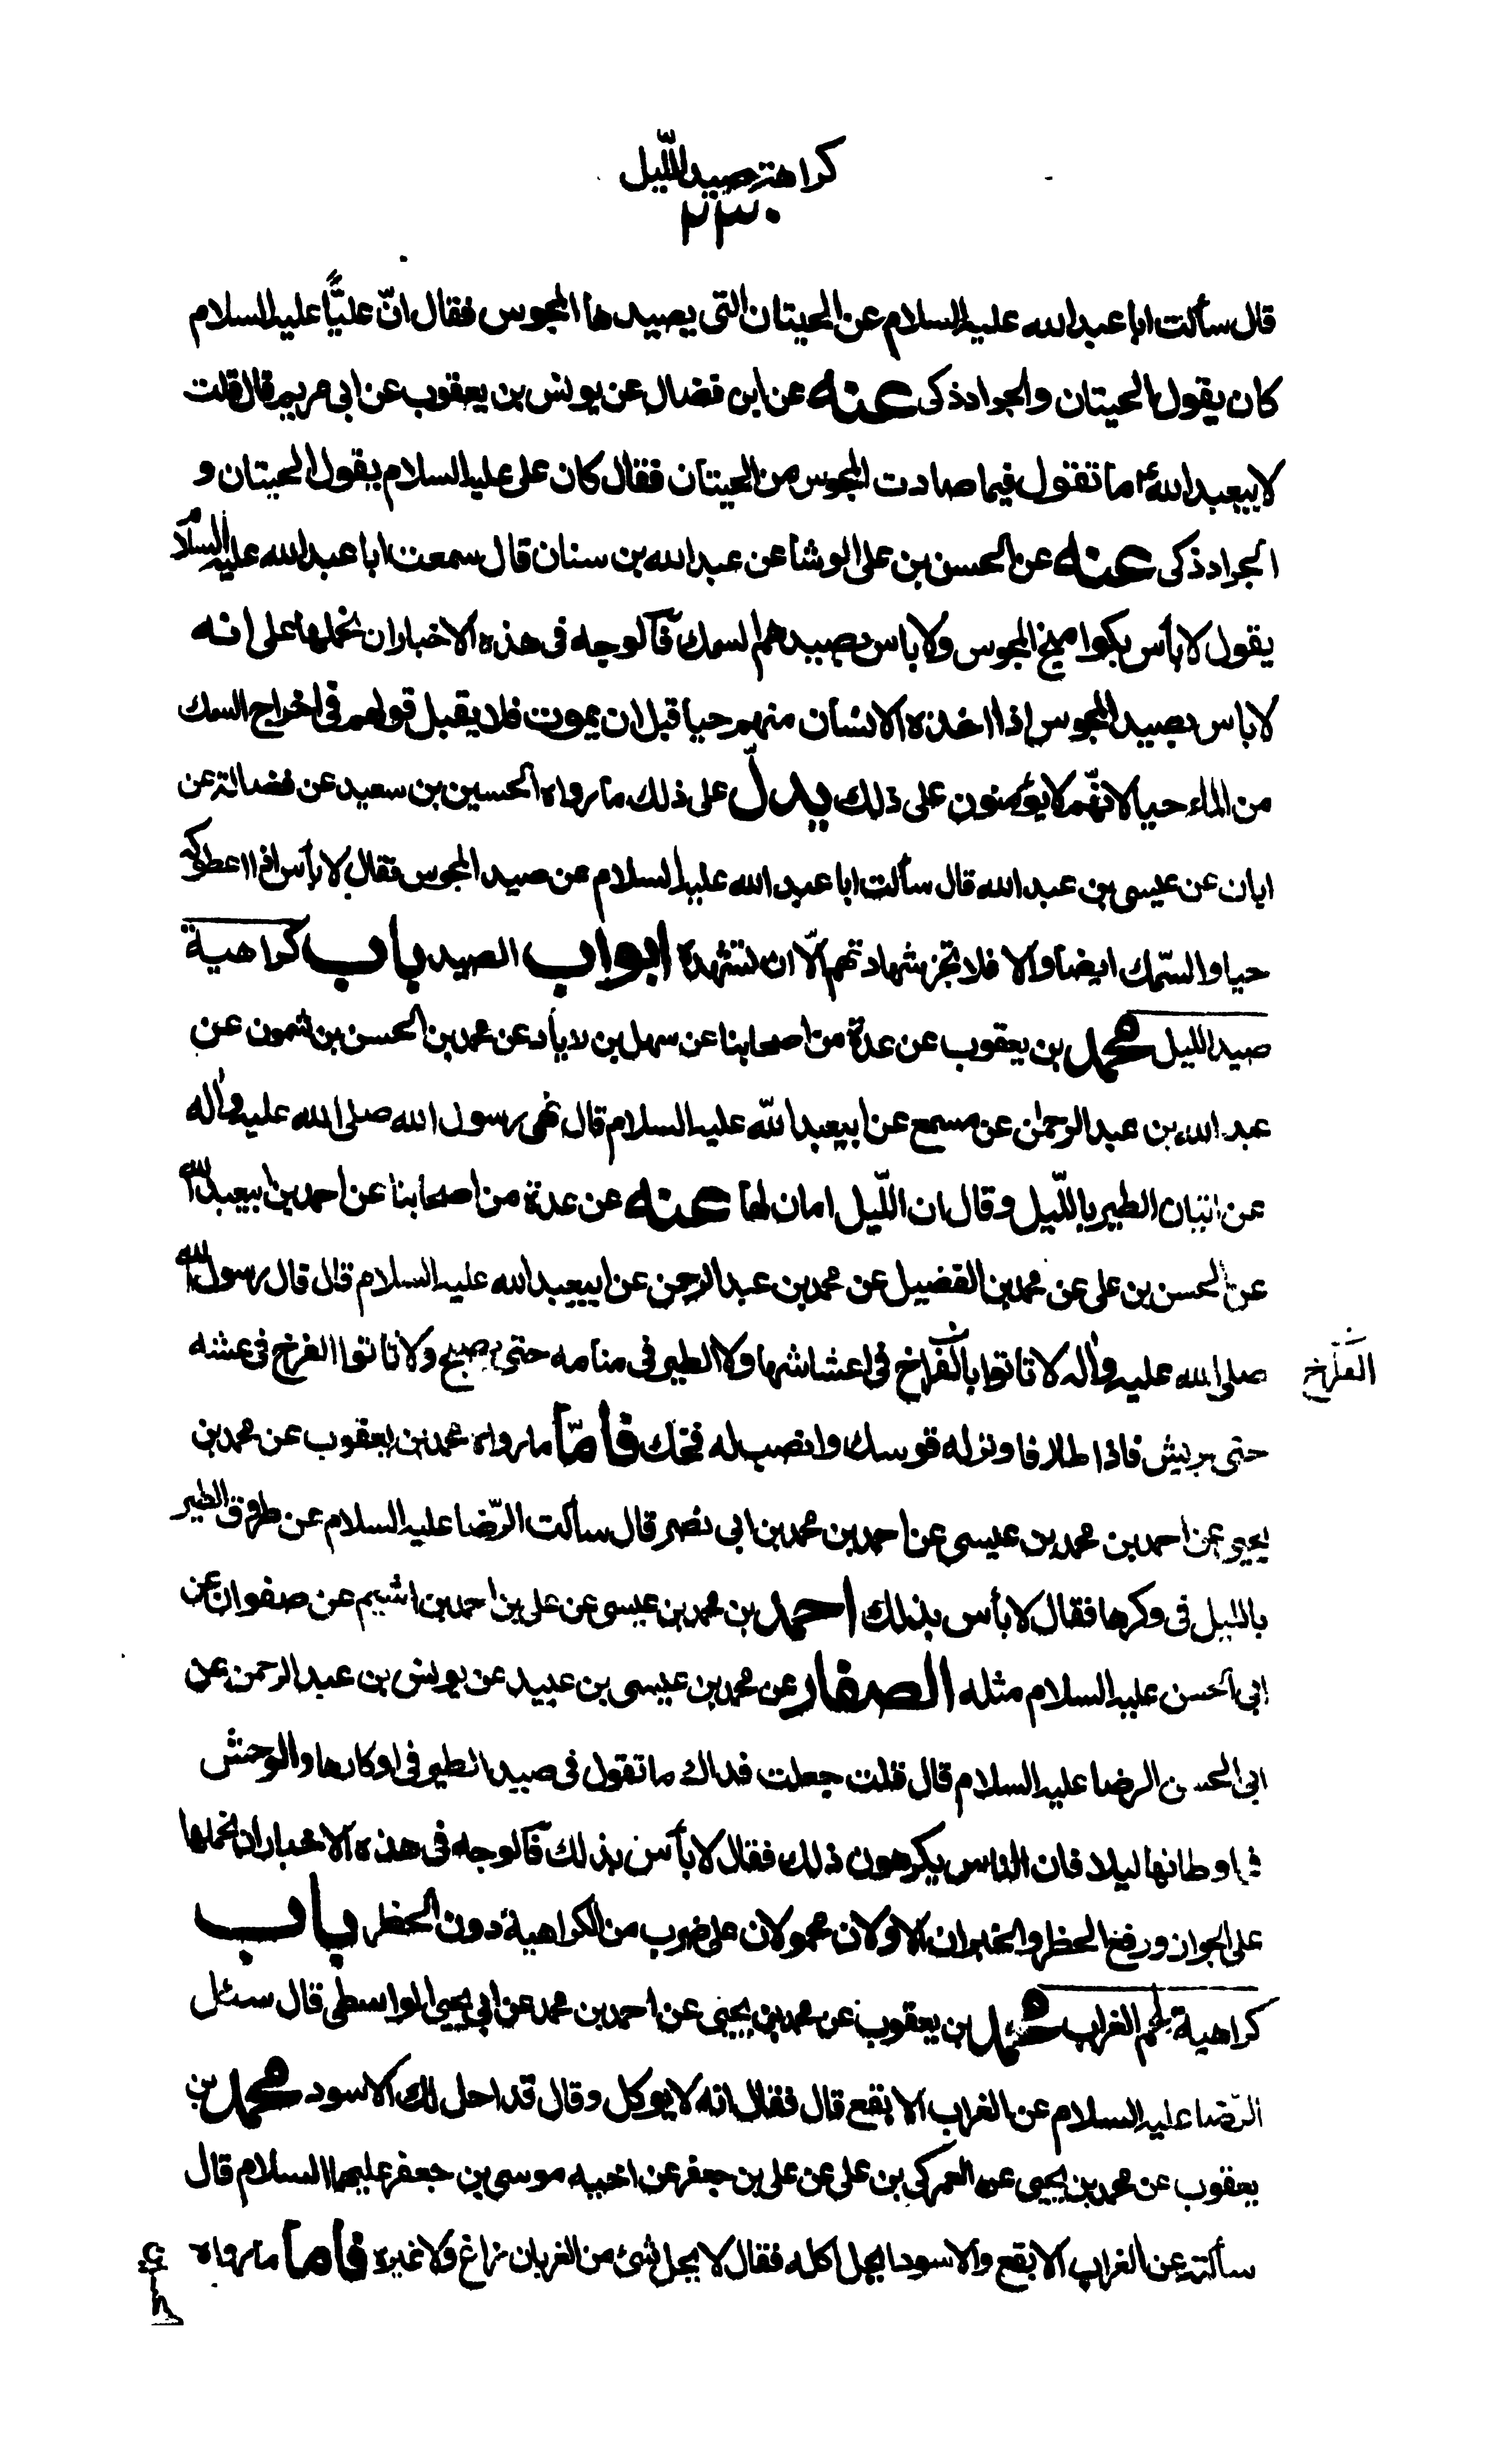 كراهة صيد الليل
٢٣٠
قال سألت ابا عبد الله عليه السلام عن الحيتان التى يصيدها المجوس فقال انّ عليّا عليه السلام
كان يقول الحيتان والجراد ذكى عنه عن ابن فضال عن يونس بن يعقوب عن ابى مريم قال قلت
لابيعبد الله ع ما تقول فيما صادت المجوس من الحيتان فقال كان على عليه السلام يقول الحيتان و
الجراد ذكى عنه عن الحسن بن على الوشا عن عبد الله بن سنان قال سمعت ابا عبد الله عليه السلام
يقول لا بأس بكواميخ المجوس ولا باس بصيدهم السمك فالوجه فى هذه الاخبار ان نحملها على انه
لا باس بصيد المجوس اذا اخذه الانسان منهم حيا قبل ان يموت فلا يقبل قولهم فى اخراج السمك
من الماء حيا لانهّم لا يؤمنون على ذلك يدلّ على ذلك ما رواه الحسين بن سعيد عن فضالة عن
ابان عن عيسى بن عبد الله قال سألت ابا عبد الله عليه السلام عن صيد المجوس فقال لا بأس اذا اعطوكه
حيا والسّمك ايضا والا فلا تجز شهادتهم الّا ان تشهده ابواب الصيد باب كراهية
صيد الليل محمد بن يعقوب عن عدة من اصحابنا عن سهل بن زياد عن محمد بن الحسن بن شمون عن
عبد الله بن عبد الرحمن عن مسمع عن ابيعبد الله عليه السلام قال نهى رسول الله صلى الله عليه واله
عن اتيان الطير بالليّل وقال ان الليّل امان لها عنه عن عدة من اصحابنا عن احمد بن ابيعبد الله
عن الحسن بن على عن محمد بن الفضيل عن محمد بن عبد الرحمن عن ابيعبد الله عليه السلام قال قال رسول الله
صلى الله عليه واله لا تاتوا بالفراخ فى اعشاشها ولا الطير فى منامه حتى يصبح ولا تاتوا الفرخ فى عشه
الفراخ
حتى يريش فاذا طار فاوتر له قوسك وانصب له فخك فامّا ما رواه محمد بن يعقوب عن محمد بن
يحيى عن احمد بن محمد بن عيسى عن احمد بن محمد بن ابى نصر قال سألت الرّضا عليه السلام عن طروق الطير
بالليل فى وكرها فقال لا بأس بذلك احمد بن محمد بن عيسى عن على بن احمد بن اشيم عن صفوان عن
ابى الحسن عليه السلام مثله الصفار عن محمد بن عيسى بن عبيد عن يونس بن عبد الرحمن عن
ابى الحسن الرضا عليه السلام قال قلت جعلت فداك ما تقول فى صيد الطير فى اوكارها والوحش
فى اوطانها ليلا فان الناس يكرهون ذلك فقال لا بأس بذلك فالوجه فى هذه الاخبار ان نحملها
على الجواز ورفع الحظر والخبران الاولان محمولان على ضرب من الكراهية دون الحظر باب
كراهية لحم الغراب محمد بن يعقوب عن محمد بن يحيى عن احمد بن محمد عن ابى يحيى الواسطى قال سئل
الرّضا عليه السلام عن الغراب الابقع قال فقال انه لا يوكل وقال قد احل لك الاسود محمد بن
يعقوب عن محمد بن يحيى عن العمركى بن على عن على بن جعفر عن اخيه موسى بن جعفر عليهما السلام قال
سألته عن الغراب الابقع والاسود ايحل اكله فقال لا يحل شئ من الغربان زاغ ولا غيره فاما ما رواه